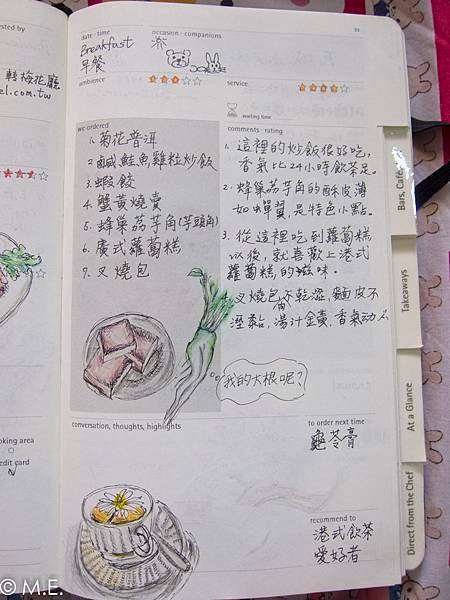 ested by
轉梅花廳
el.com.tw
oking area
edit card
date : time
occasion : companions
55
Breakfast
早餐
ambience
service
waiting time
we ordered
1. 菊花普洱
2. 鹹鮭魚雞粒炒飯
3. 蝦餃
4. 蟹黃燒賣
5. 蜂巢荔芋角(芋頭角)
6. 廣式蘿蔔糕
7. 叉燒包
comments : rating
1. 這裡的炒飯很好吃,
香氣比24小時飲茶足。
2. 蜂巢荔芋角的酥皮薄
如蟬翼,是特色小點。
3. 從這裡吃到蘿蔔糕
以後,就喜歡上港式
蘿蔔糕的滋味。
叉燒包不乾澀,麵皮不
溼黏,湯汁金黃,香氣动人
我的大根呢?
conversation, thoughts, highlights
to order next time
龜苓膏
recommend to
港式飲茶
愛好者
Bars, Cafe
Takeaways
At a Glance
Direct from the Chef
© M.E.